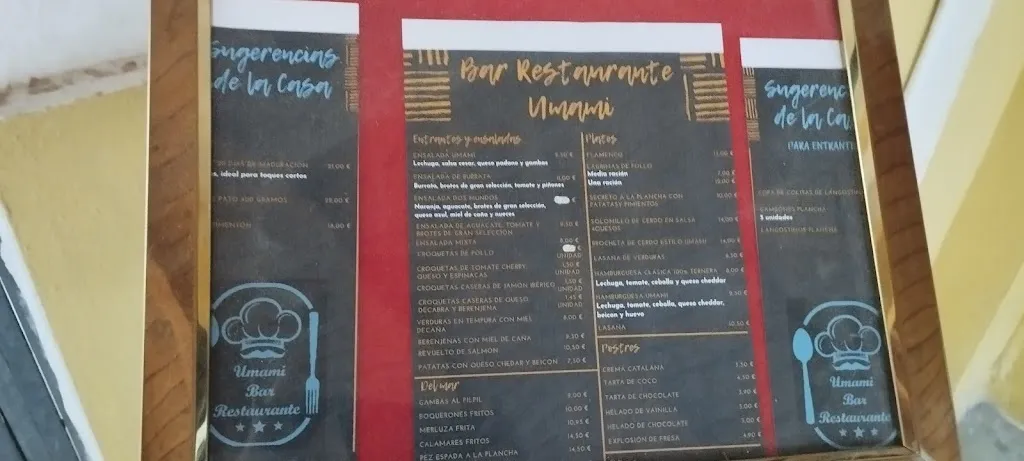 Sugerencias
de la Casa
25.00 €
ideal para toques cortos
PATO 400 GRAMOS
18,00 €
Umami
Bar
Restaurante
Bar Restaurante
Umami
Entrantes y ensaladas
ENSALADA UMAMI
Lechuga, salsa cesar, queso padano y gambas
ENSALADA DE BURRATA
Burrata, brotes de gran selección, tomate y piñones
ENSALADA DOS MUNDOS €
Naranja, aguacate, brotes de gran selección,
queso azul, miel de caña y nueces
ENSALADA DE AGUACATE, TOMATE Y 9,50 €
BROTES DE GRAN SELECCIÓN
ENSALADA MIXTA 8,00 €
CROQUETAS DE POLLO € UNIDAD
CROQUETAS DE TOMATE CHERRY, 1,50 €
QUESO Y ESPINACAS UNIDAD
CROQUETAS CASERAS DE JAMÓN IBÉRICO UNIDAD
CROQUETAS CASERAS DE QUESO 1,45 €
DECABRA Y BERENJENA UNIDAD
VERDURAS EN TEMPURA CON MIEL 8,00 €
DECAÑA
BERENJENAS CON MIEL DE CAÑA 9,50 €
REVUELTO DE SALMÓN 10,50 €
PATATAS CON QUESO CHEDAR Y BEICON 7,50 €
Del mar
GAMBAS AL PILPIL 9,00 €
BOQUERONES FRITOS 10,00 €
MERLUZA FRITA 10,95 €
CALAMARES FRITOS 14,50 €
PEZ ESPADA A LA PLANCHA 14,50 €
Platos
FLAMENCO
LÁGRIMAS DE POLLO
Media ración 7,00 €
Una ración
SECRETO A LA PLANCHA CON
PATATAS Y PIMIENTOS
SOLOMILLO DE CERDO EN SALSA 14,00 €
AQUESOS
BROCHETA DE CERDO ESTILO UMAMI 14,00 €
LASAÑA DE VERDURAS
HAMBURGUESA CLÁSICA 100% TERNERA 8,00 €
Lechuga, tomate, cebolla y queso cheddar
HAMBURGUESA UMAMI 9,50 €
Lechuga, tomate, cebolla, queso cheddar,
beicon y huevo
LASAÑA 10,50 €
Postres
CREMA CATALANA
TARTA DE COCO 4,50 €
TARTA DE CHOCOLATE 3,90 €
HELADO DE VAINILLA 3,00 €
HELADO DE CHOCOLATE 3,00 €
EXPLOSIÓN DE FRESA 4,90 €
Sugerenc
de la Ca
PARA ENTRANTE
COPA DE COLITAS DE LANGOSTINO
PLANCHA
3 unidades
LANGOSTINOS PLANCHA
Umami
Bar
Restaurante